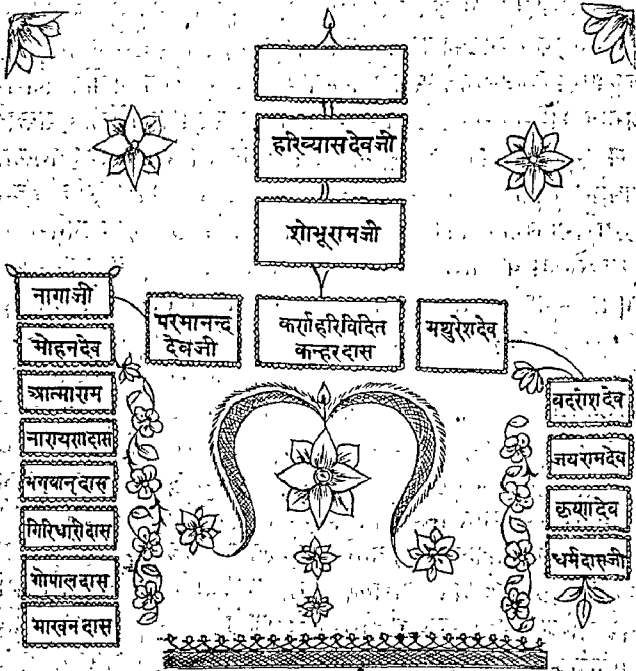 हरिव्यासदेवजी
शोभूरामजी
नागाजी
परमानन्द
देवजी
कर्णहरिविदित
कन्हरदास
मथुरेशदेव
मोहनदेव
आत्माराम
नारायणदास
भगवान्दास
गिरिधारीदास
गोपालदास
माखनदास
जयरामदेव
धर्मदासजी